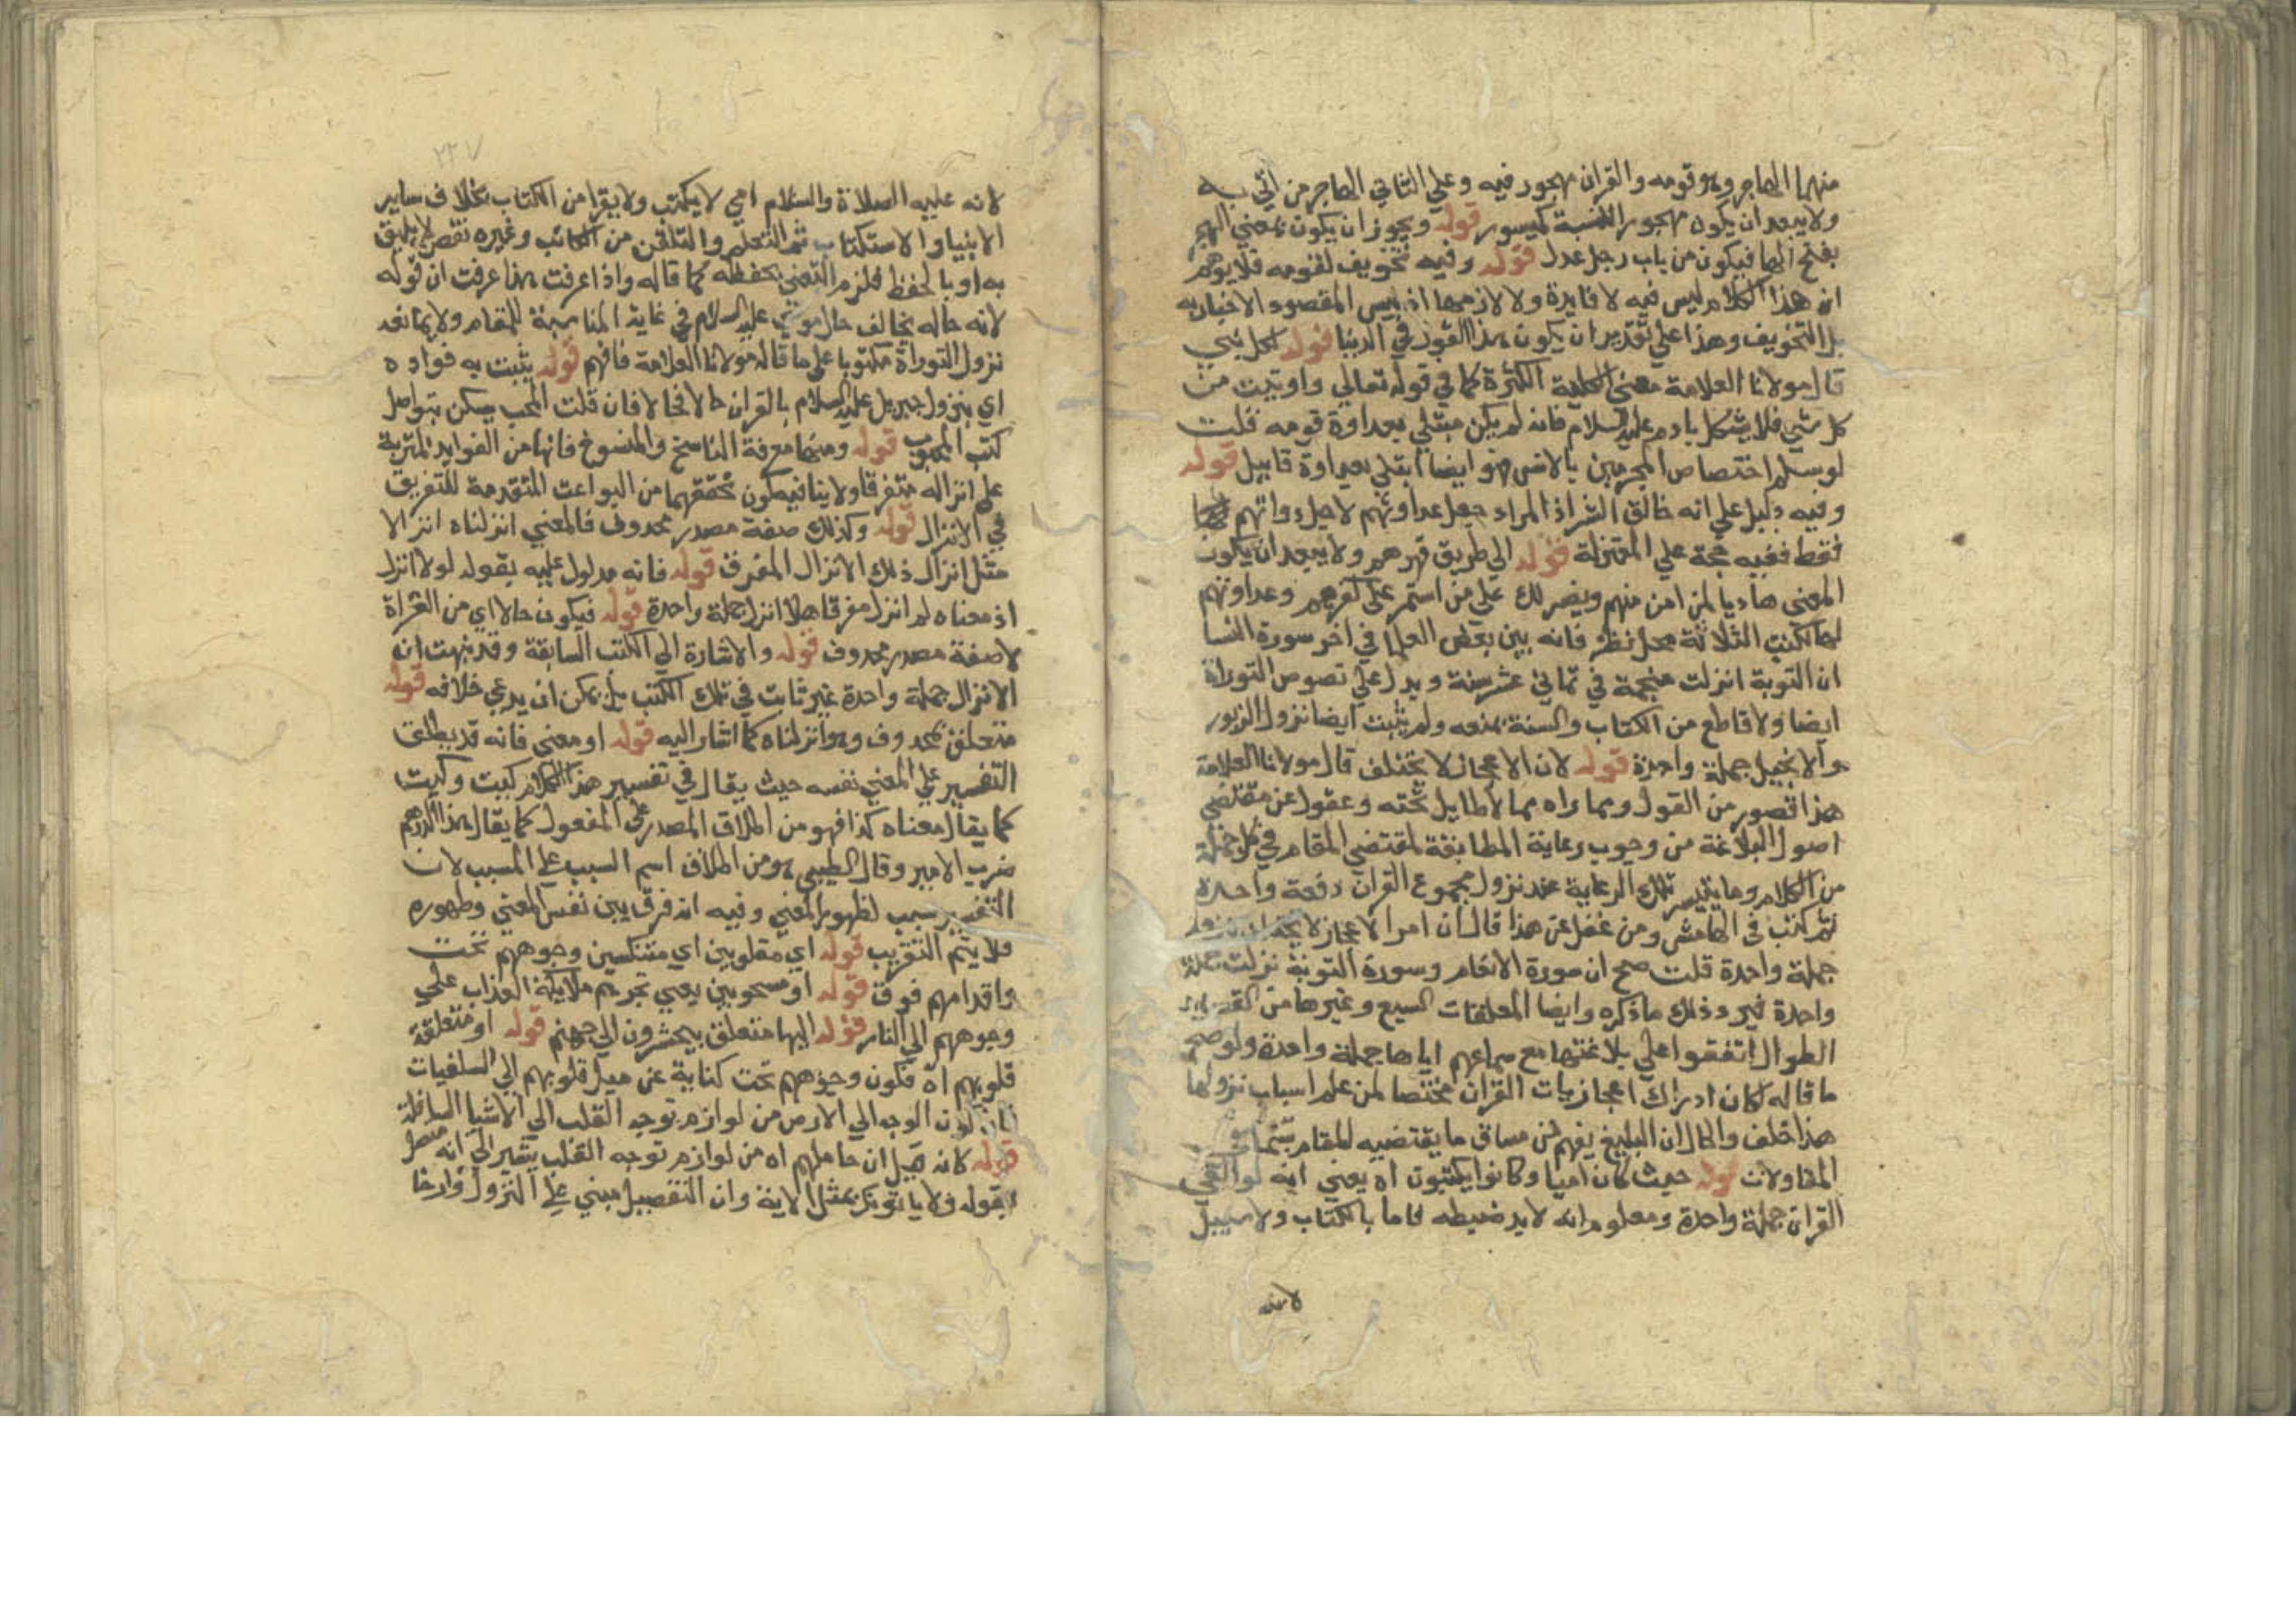 منهما الهاجر وهو قومه والقران مهجور فيه وعلي الثاني الهاجر من اتي به
ولا يبعد ان يكون مهجورا للنسبة كميسور قوله ويجوز ان يكون بمعني الهجر
بفتح الها فيكون من باب رجل عدل قوله وفيه تخويف لقومه فلا يوهم
ان هذا الكلام ليس فيه لا فايدة ولا لازمها اذ ليس المقصود الاخبار به
بل التخويف وهذا علي تقدير ان يكون هذا القول في الدنيا قوله لكل نبي
قال مولانا العلامة معني الكلية الكثرة كما في قوله تعالي واوتيت من
كل شي فلا يشكل بادم عليه السلام فانه لم يكن مبتلي بعداوة قومه قلت
لو سلم اختصاص المجرمين بالانس فهو ايضا ابتلي بعداوة قابيل قوله
وفيه دليل علي انه خالق الشر اذ المراد جعل عداوتهم لا جعل ذواتهم
فقط ففيه حجة علي المعتزلة قوله الي طريق قهرهم ولا يبعد ان يكون
المعني هاديا لمن امن منهم وينصرك علي من استمر علي كفرهم وعداوتهم
كالكتب الثلاثة محل نظر فانه بين بعض العلما في اخر سورة النسا
ان التوبة انزلت منجمة في ثماني عشر سنة ويدل علي نصوص التوراة
ايضا ولا قاطع من الكتاب والسنة يمنعه ولم يثبت ايضا نزول الزبور
والانجيل جملة واحدة قوله لان الاعجاز لا يختلف قال مولانا العلامة
هذا قصور من القول وبما راه مما لا طايل تحته وعقول عن مقتضي
اصول البلاغة من وجوب رعاية المطابقة لمقتضي المقام في كل جملة
من الكلام وما يتيسر تلك الرعاية عند نزول مجموع القران دفعة واحدة
ثم كتب في الهامش ومن غفل عن هذا قال ان امر الاعجاز لا يختلف بنزوله
جملة واحدة قلت صح ان سورة الانعام وسورة التوبة نزلت جملة
واحدة فيرد ذلك ما ذكره وايضا المعلقات السبع وغيرها من القصايد
الطوال اتفقوا علي بلاغتها مع سماعهم اياها جملة واحدة ولو صح
ما قاله لكان ادراك اعجاز ايات القران مختصا لمن علم اسباب نزولها
هذا خلف والحال ان البليغ يفهم من مساق ما يقتضيه المقام
المقاولات قوله حيث كان اميا وكانوا يكتبون اه يعني انه لو القي
القران جملة واحدة ومعلوم انه لا بد ضبطه فاما بالكتاب ولا سبيل
لانه
٢٢٧
لانه عليه الصلاة والسلام امي لا يكتب ولا يقرا من الكتاب بخلاف ساير
الانبيا والاستكتاب ثم التعلم والتلقن من الكاتب وغيره نقص لا يليق
به او بالحفظ فلزم التعني بحفظه كما قاله واذا عرفت هذا عرفت ان قوله
لانه حاله يخالف حال موسي عليه السلام في غاية المناسبة للمقام ولا يمانعه
نزول التوراة مكتوبا علي ما قاله مولانا العلامة فافهم قوله يثبت به فواده
اي بنزول جبريل عليه السلام بالقران حالا فحالا فان قلت المحب يسكن بتواصل
كتب المحبوب قوله ومنها معرفة الناسخ والمنسوخ فانها من الفوايد المترتبة
علي انزاله متفرقا ولا ينافيه كون تحققهما من البواعث المتقدمة للتفريق
في الانزال قوله وكذلك صفة مصدر محذوف فالمعني انزلناه انزالا
مثل انزال ذلك الانزال المفرق قوله فانه مدلول عليه بقوله لولا انزل
اذ معناه لم انزل مفرقا هلا انزل جملة واحدة قوله فيكون حالا اي من القراة
لا صفة مصدر محذوف قوله والاشارة الي الكتب السابقة وقد نبهت ان
الانزال جملة واحدة غير ثابت في تلك الكتب بل يمكن ان يدعي خلافه قوله
متعلق بمحذوف وهو انزلناه كما اشار اليه قوله او معني فانه قد يطلق
التفسير علي المعني نفسه حيث يقال في تفسير هذا الكلام كيت وكيت
كما يقال معناه كذا فهو من اطلاق المصدر علي المفعول كما يقال هذا الدرهم
ضرب الامير وقال الطيبي هو من اطلاق اسم السبب علي المسبب لان
التفسير سبب لظهور المعني وفيه انه فرق بين نفس المعني وظهوره
فلا يتم التقريب قوله اي مقلوبين اي منتكسين وجوههم تحت
واقدامهم فوق قوله او مسحوبين يعني تجرهم ملايكة العذاب علي
وجوههم الي النار قوله اليها متعلق بيحشرون الي جهنم قوله او متعلقة
قلوبهم اه فتكون وجوههم تحت كناية عن ميل قلوبهم الي السلفيات
فان كون الوجه الي الارض من لوازم توجه القلب الي الاشيا السافلة
قوله كانه قيل ان حاملهم اه من لوازم توجه القلب يشير الي انه متصل
بقوله ولا ياتونك بمثل الاية وان التفضيل مبني علي التنزل وارخا